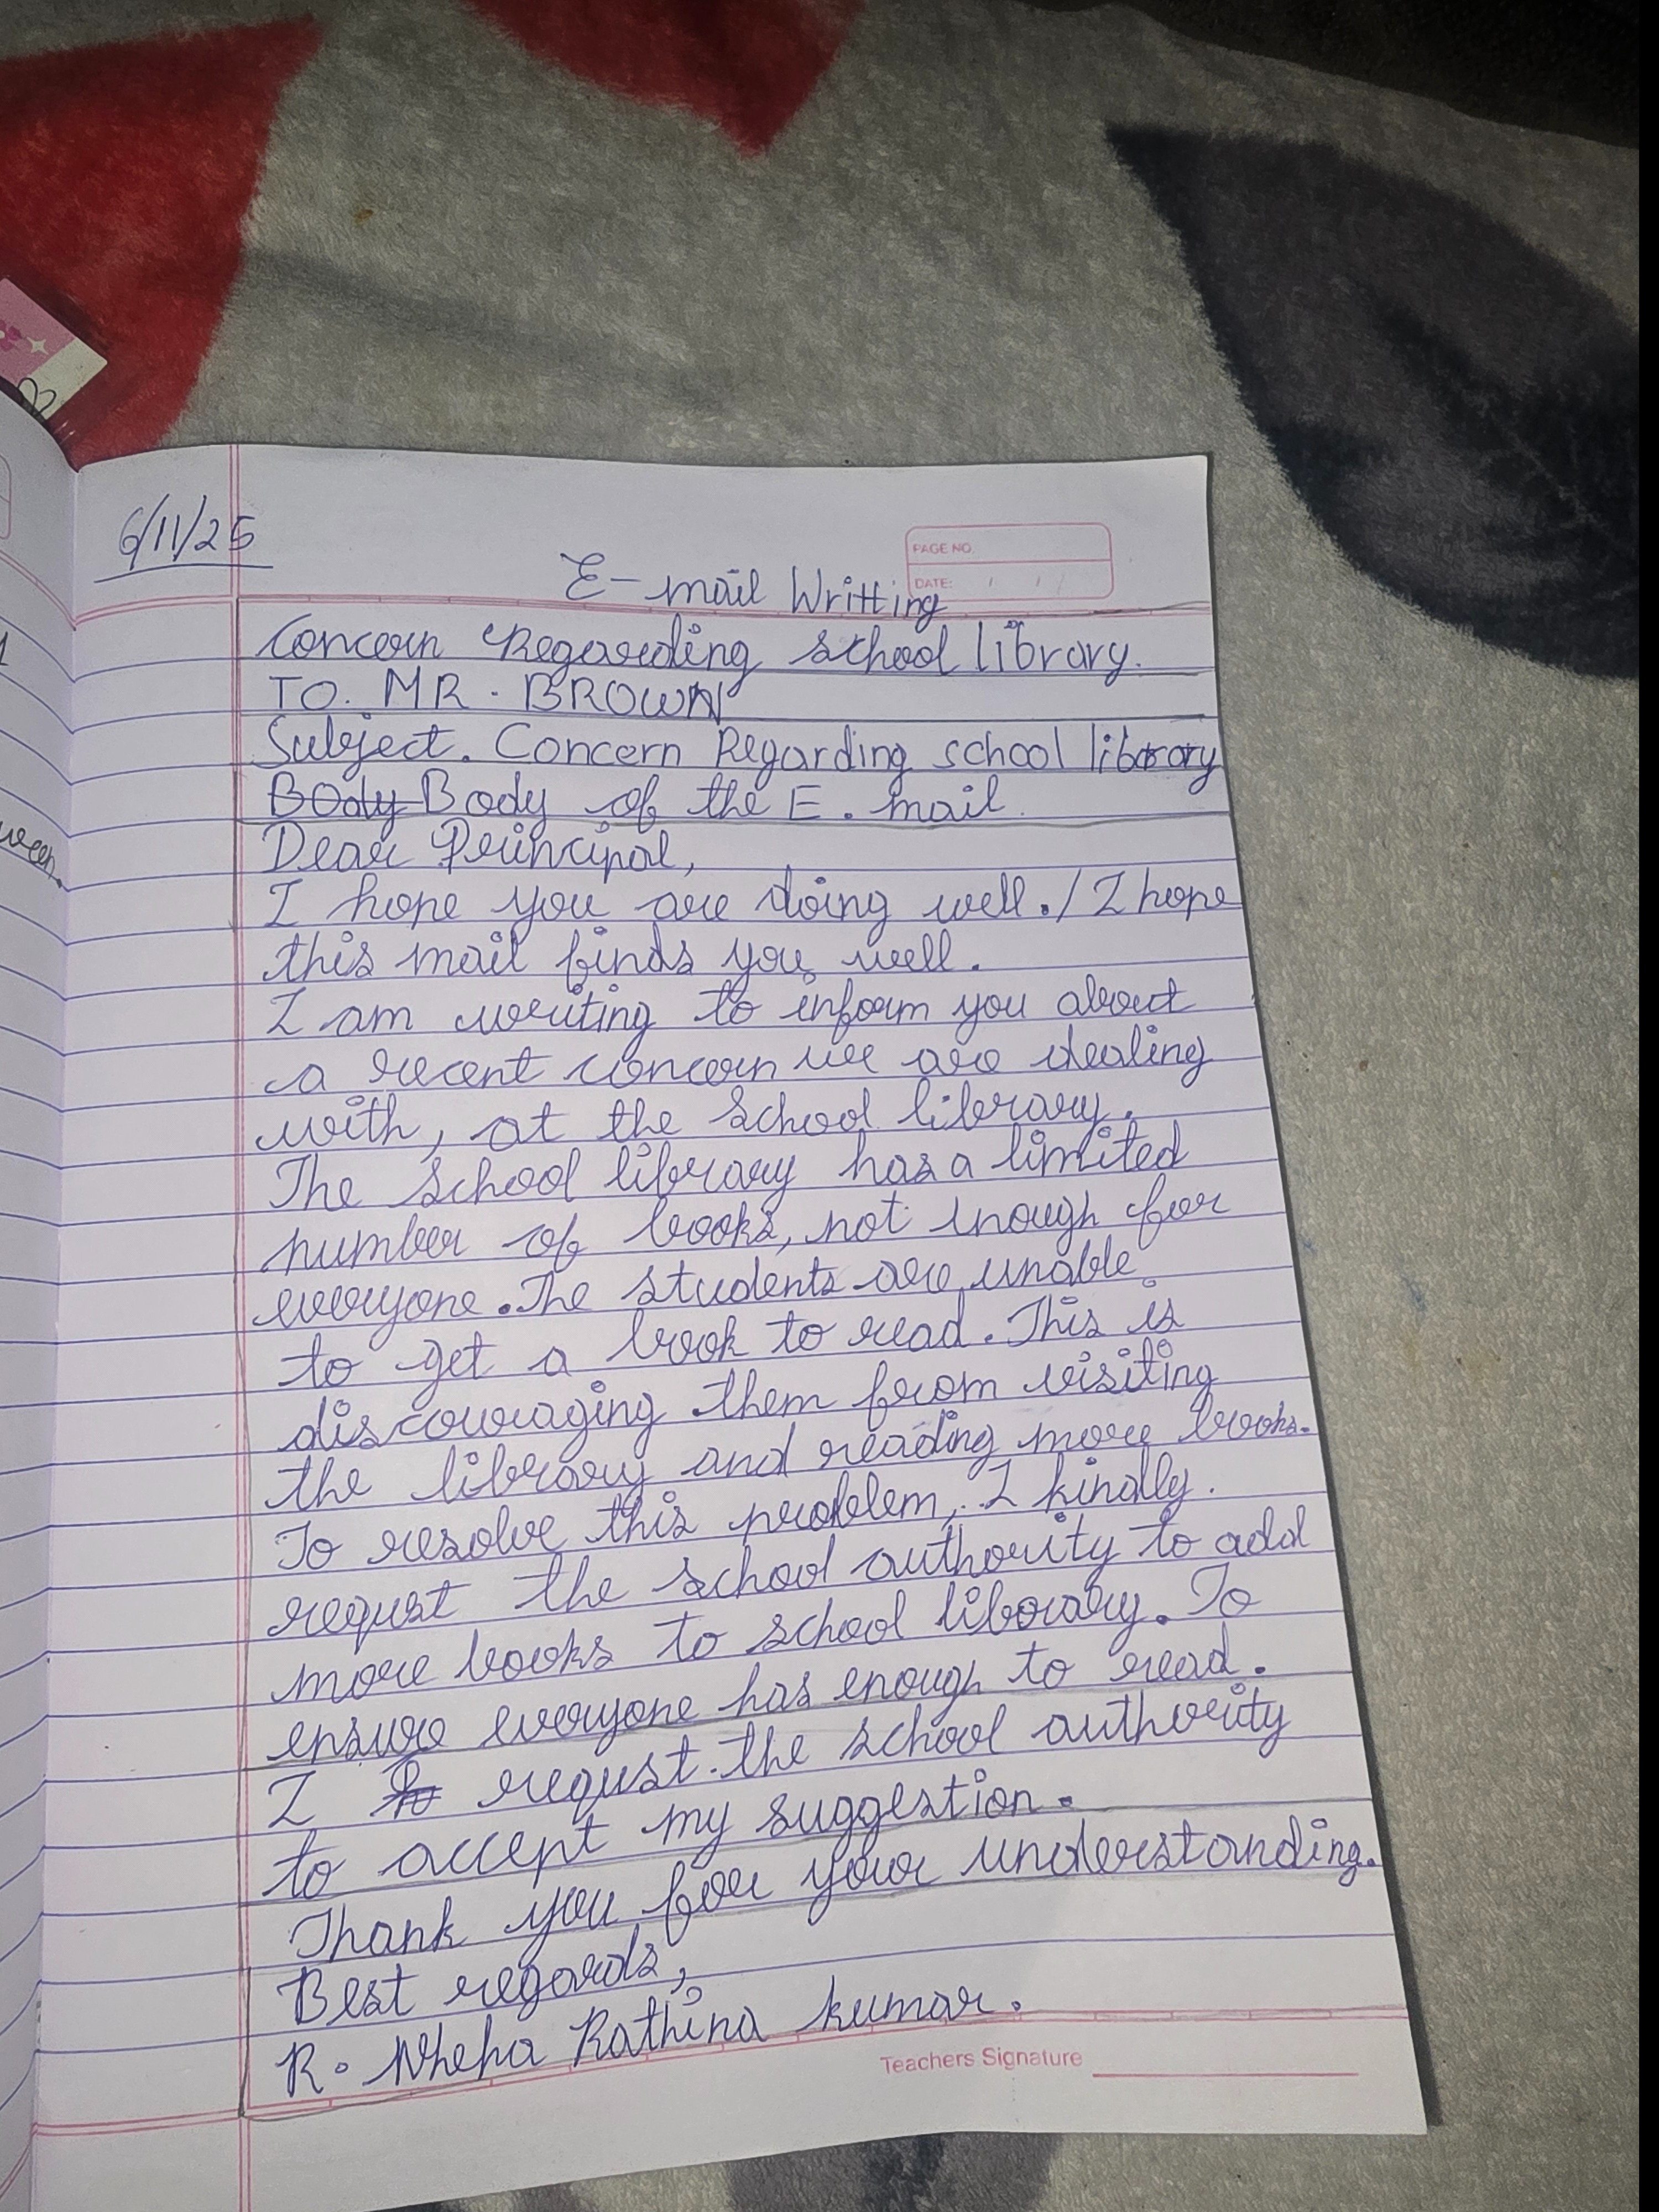 6/11/25
PAGE NO.
DATE: / /
E-mail Writting
Concern Regarding school library.
TO. MR. BROWN
Subject. Concern Regarding school library
Body Body of the E. mail.
Dear Principal,
I hope you are doing well./I hope
this mail finds you well.
I am writing to inform you about
a recent concern we are dealing
with, at the school library.
The school library has a limited
number of books, not inough for
everyone. The students are unable
to get a book to read. This is
discouraging them from visiting
the library and reading more books.
To resolve this problem, I kindly.
requst the school authority to add
more books to school library. To
ensure everyone has enough to read.
I requst the school authority
to accept my suggestion.
Thank you for your understanding.
Best regards,
R. Nheha Rathina kumar.
Teachers Signature
ween.